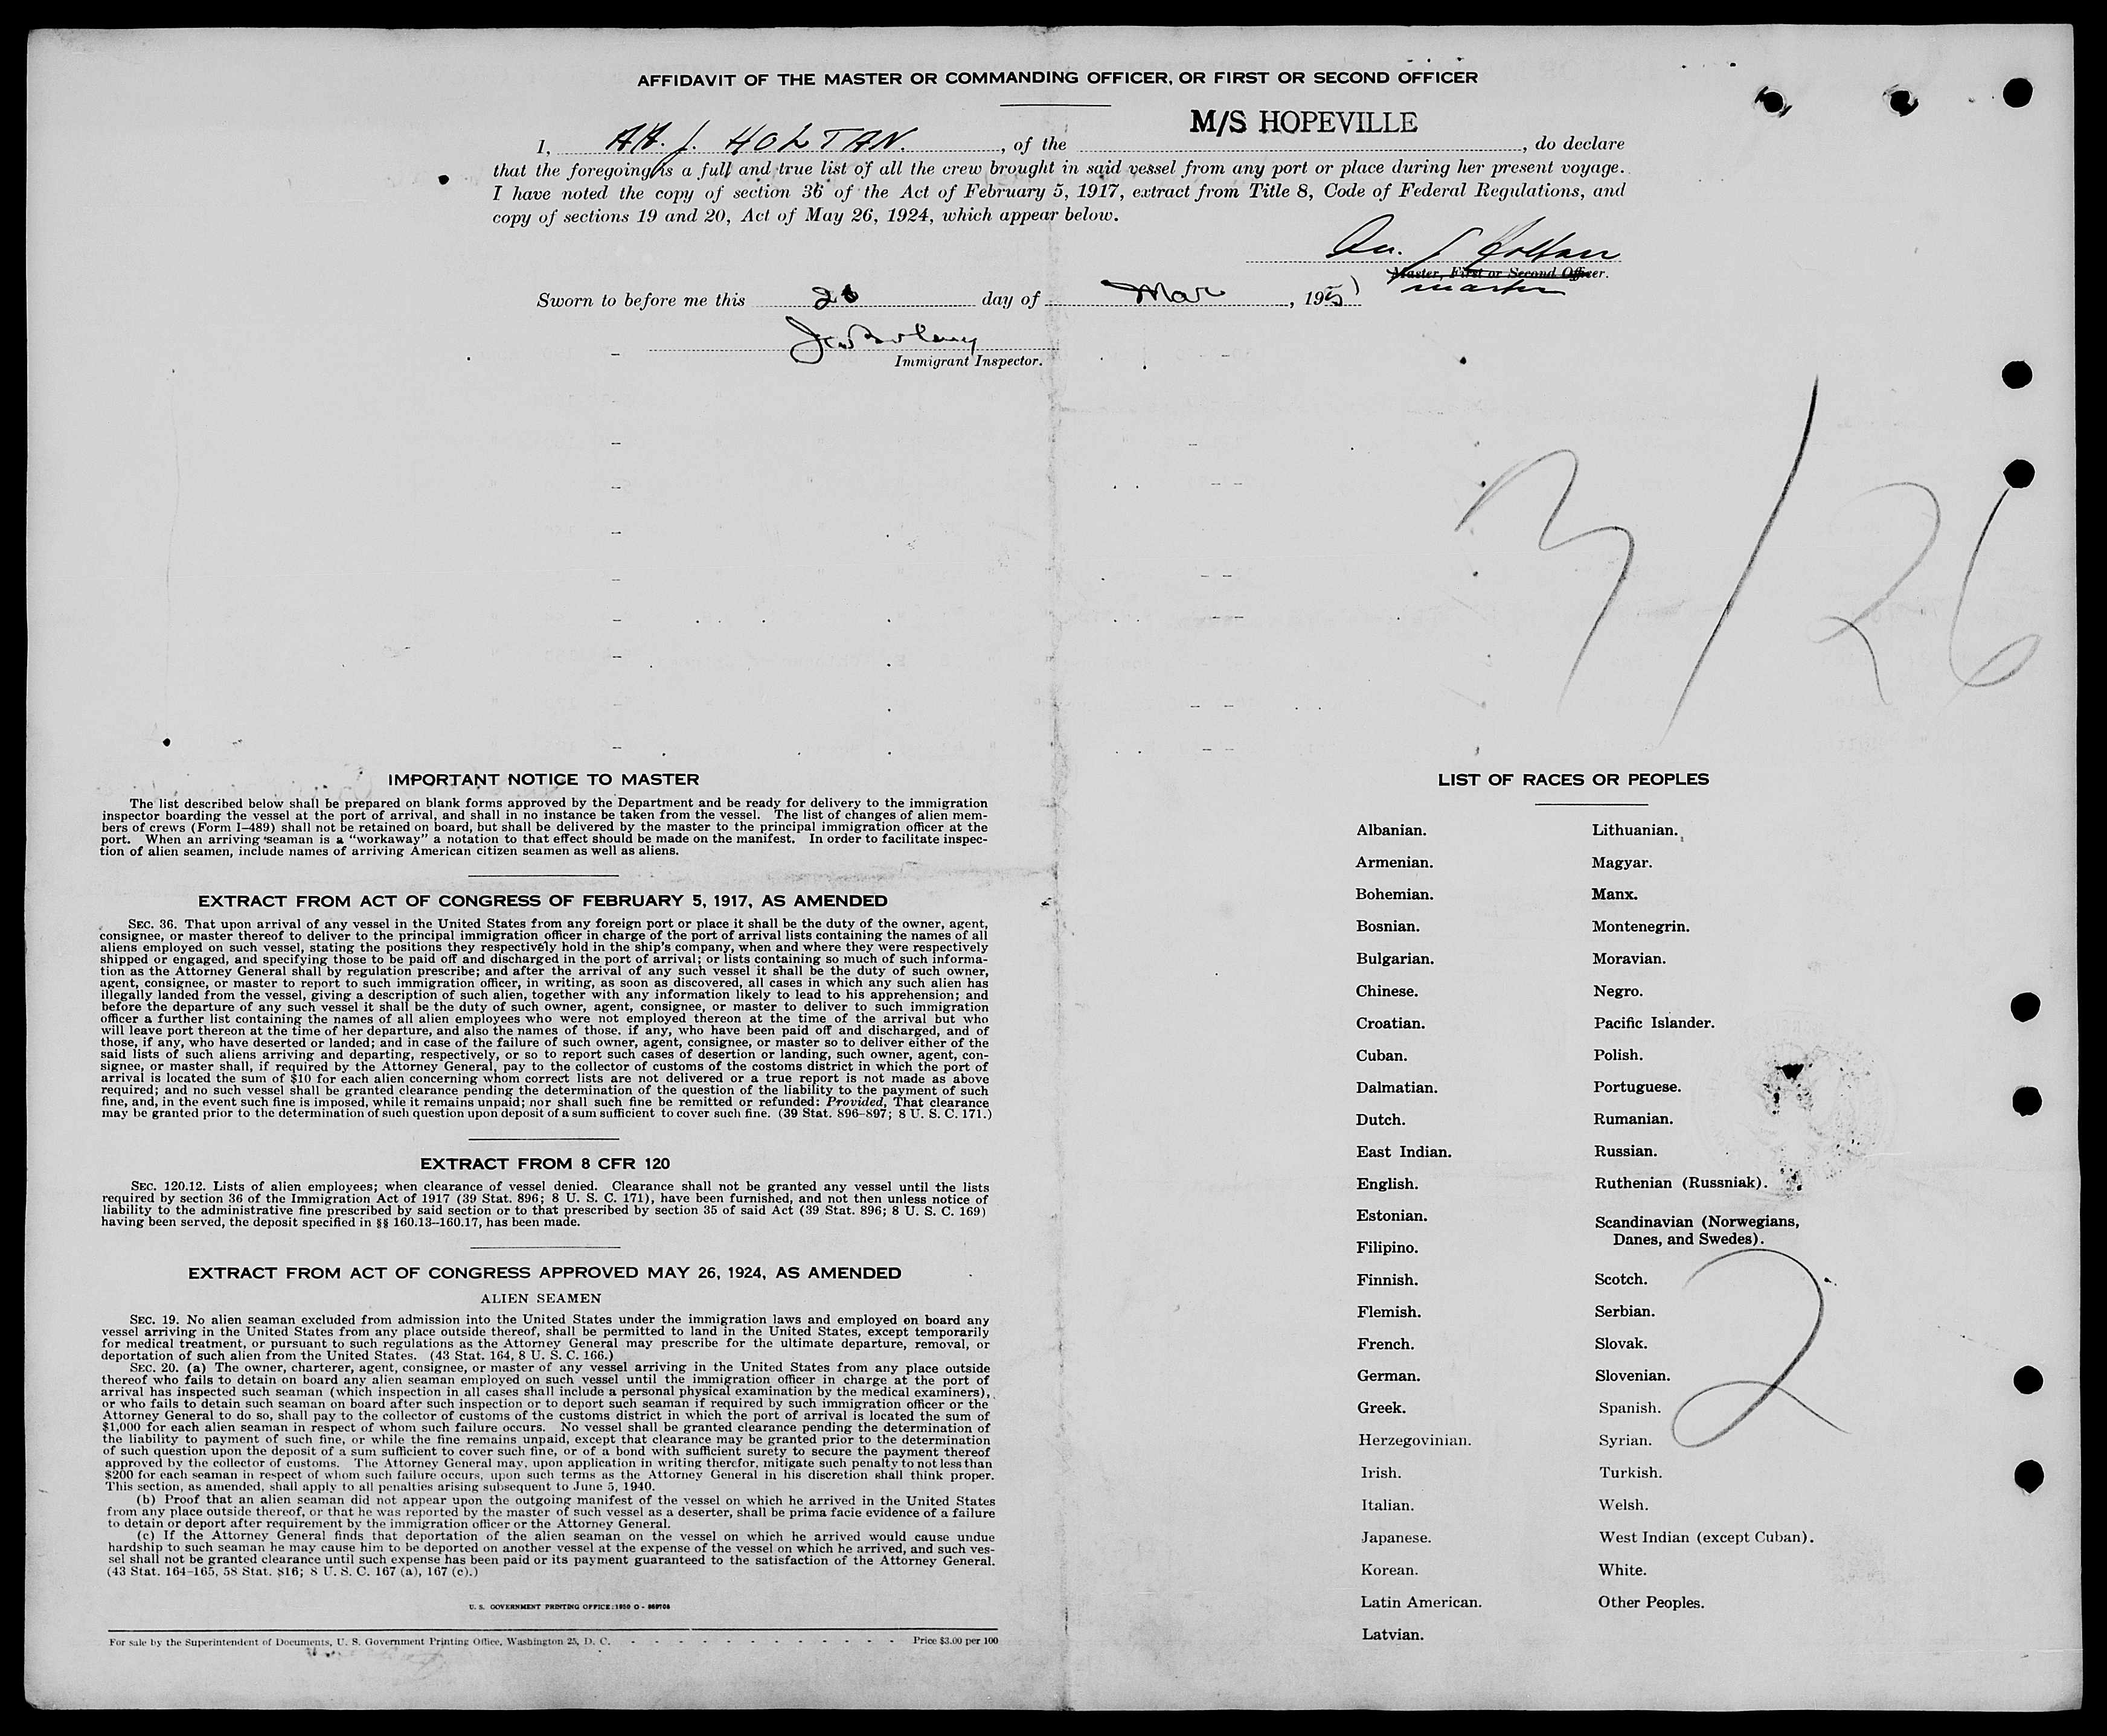 AFFIDAVIT OF THE MASTER OR COMMANDING OFFICER, OR FIRST OR SECOND OFFICER
M/S HOPEVILLE
I, J. HOLTAN., of the , do declare
that the foregoing is a full and true list of all the crew brought in said vessel from any port or place during her present voyage.
I have noted the copy of section 36 of the Act of February 5, 1917, extract from Title 8, Code of Federal Regulations, and
copy of sections 19 and 20, Act of May 26, 1924, which appear below.
J Holtan
Master, First or Second Officer.
master
Sworn to before me this day of Mar, 195
Immigrant Inspector.
3/26
IMPORTANT NOTICE TO MASTER
The list described below shall be prepared on blank forms approved by the Department and be ready for delivery to the immigration
inspector boarding the vessel at the port of arrival, and shall in no instance be taken from the vessel. The list of changes of alien mem-
bers of crews (Form I-489) shall not be retained on board, but shall be delivered by the master to the principal immigration officer at the
port. When an arriving seaman is a "workaway" a notation to that effect should be made on the manifest. In order to facilitate inspec-
tion of alien seamen, include names of arriving American citizen seamen as well as aliens.
EXTRACT FROM ACT OF CONGRESS OF FEBRUARY 5, 1917, AS AMENDED
SEC. 36. That upon arrival of any vessel in the United States from any foreign port or place it shall be the duty of the owner, agent,
consignee, or master thereof to deliver to the principal immigration officer in charge of the port of arrival lists containing the names of all
aliens employed on such vessel, stating the positions they respectively hold in the ship's company, when and where they were respectively
shipped or engaged, and specifying those to be paid off and discharged in the port of arrival; or lists containing so much of such informa-
tion as the Attorney General shall by regulation prescribe; and after the arrival of any such vessel it shall be the duty of such owner,
agent, consignee, or master to report to such immigration officer, in writing, as soon as discovered, all cases in which any such alien has
illegally landed from the vessel, giving a description of such alien, together with any information likely to lead to his apprehension; and
before the departure of any such vessel it shall be the duty of such owner, agent, consignee, or master to deliver to such immigration
officer a further list containing the names of all alien employees who were not employed thereon at the time of the arrival but who
will leave port thereon at the time of her departure, and also the names of those, if any, who have been paid off and discharged, and of
those, if any, who have deserted or landed; and in case of the failure of such owner, agent, consignee, or master so to deliver either of the
said lists of such aliens arriving and departing, respectively, or so to report such cases of desertion or landing, such owner, agent, con-
signee, or master shall, if required by the Attorney General, pay to the collector of customs of the costoms district in which the port of
arrival is located the sum of $10 for each alien concerning whom correct lists are not delivered or a true report is not made as above
required; and no such vessel shall be granted clearance pending the determination of the question of the liability to the payment of such
fine, and, in the event such fine is imposed, while it remains unpaid; nor shall such fine be remitted or refunded: Provided, That clearance
may be granted prior to the determination of such question upon deposit of a sum sufficient to cover such fine. (39 Stat. 896-897; 8 U. S. C. 171.)
EXTRACT FROM 8 CFR 120
SEC. 120.12. Lists of alien employees; when clearance of vessel denied. Clearance shall not be granted any vessel until the lists
required by section 36 of the Immigration Act of 1917 (39 Stat. 896; 8 U. S. C. 171), have been furnished, and not then unless notice of
liability to the administrative fine prescribed by said section or to that prescribed by section 35 of said Act (39 Stat. 896; 8 U. S. C. 169)
having been served, the deposit specified in §§ 160.13-160.17, has been made.
EXTRACT FROM ACT OF CONGRESS APPROVED MAY 26, 1924, AS AMENDED
ALIEN SEAMEN
SEC. 19. No alien seaman excluded from admission into the United States under the immigration laws and employed on board any
vessel arriving in the United States from any place outside thereof, shall be permitted to land in the United States, except temporarily
for medical treatment, or pursuant to such regulations as the Attorney General may prescribe for the ultimate departure, removal, or
deportation of such alien from the United States. (43 Stat. 164, 8 U. S. C. 166.)
SEC. 20. (a) The owner, charterer, agent, consignee, or master of any vessel arriving in the United States from any place outside
thereof who fails to detain on board any alien seaman employed on such vessel until the immigration officer in charge at the port of
arrival has inspected such seaman (which inspection in all cases shall include a personal physical examination by the medical examiners),
or who fails to detain such seaman on board after such inspection or to deport such seaman if required by such immigration officer or the
Attorney General to do so, shall pay to the collector of customs of the customs district in which the port of arrival is located the sum of
$1,000 for each alien seaman in respect of whom such failure occurs. No vessel shall be granted clearance pending the determination of
the liability to payment of such fine, or while the fine remains unpaid, except that clearance may be granted prior to the determination
of such question upon the deposit of a sum sufficient to cover such fine, or of a bond with sufficient surety to secure the payment thereof
approved by the collector of customs. The Attorney General may, upon application in writing therefor, mitigate such penalty to not less than
$200 for each seaman in respect of whom such failure occurs, upon such terms as the Attorney General in his discretion shall think proper.
This section, as amended, shall apply to all penalties arising subsequent to June 5, 1940.
(b) Proof that an alien seaman did not appear upon the outgoing manifest of the vessel on which he arrived in the United States
from any place outside thereof, or that he was reported by the master of such vessel as a deserter, shall be prima facie evidence of a failure
to detain or deport after requirement by the immigration officer or the Attorney General.
(c) If the Attorney General finds that deportation of the alien seaman on the vessel on which he arrived would cause undue
hardship to such seaman he may cause him to be deported on another vessel at the expense of the vessel on which he arrived, and such ves-
sel shall not be granted clearance until such expense has been paid or its payment guaranteed to the satisfaction of the Attorney General.
(43 Stat. 164-165, 58 Stat. 816; 8 U. S. C. 167 (a), 167 (c).)
U. S. GOVERNMENT PRINTING OFFICE: 1950 O -
For sale by the Superintendent of Documents, U. S. Government Printing Office, Washington 25, D. C. - - - - - - - - - - - Price $3.00 per 100
LIST OF RACES OR PEOPLES
Albanian.
Armenian.
Bohemian.
Bosnian.
Bulgarian.
Chinese.
Croatian.
Cuban.
Dalmatian.
Dutch.
East Indian.
English.
Estonian.
Filipino.
Finnish.
Flemish.
French.
German.
Greek.
Herzegovinian.
Irish.
Italian.
Japanese.
Korean.
Latin American.
Latvian.
Lithuanian.
Magyar.
Manx.
Montenegrin.
Moravian.
Negro.
Pacific Islander.
Polish.
Portuguese.
Rumanian.
Russian.
Ruthenian (Russniak).
Scandinavian (Norwegians,
Danes, and Swedes).
Scotch.
Serbian.
Slovak.
Slovenian.
Spanish.
Syrian.
Turkish.
Welsh.
West Indian (except Cuban).
White.
Other Peoples.
2